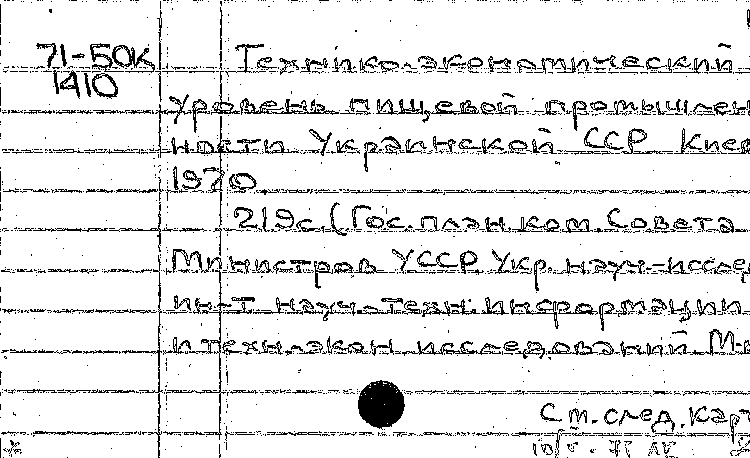 71-50К Технико-экономический
1410
уровень пищевой промышлен
ности Украинской ССР Киев
1970
219с. (Гос. план. ком. Совета
Министров УССР Укр. науч-исслед
ин-т науч.-техн. информации
и техн.-экон. исследований М-в
См. след. карт